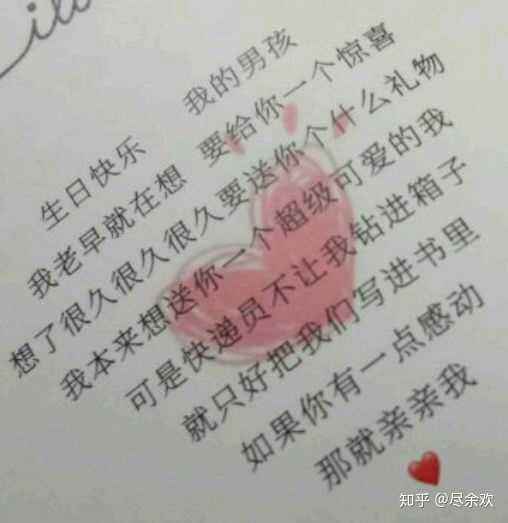 生日快乐 我的男孩
我老早就在想 要给你一个惊喜
想了很久很久很久要送你个什么礼物
我本来想送你一个超级可爱的我
可是快递员不让我钻进箱子
就只好把我们写进书里
如果你有一点感动
那就亲亲我
知乎 @尽余欢